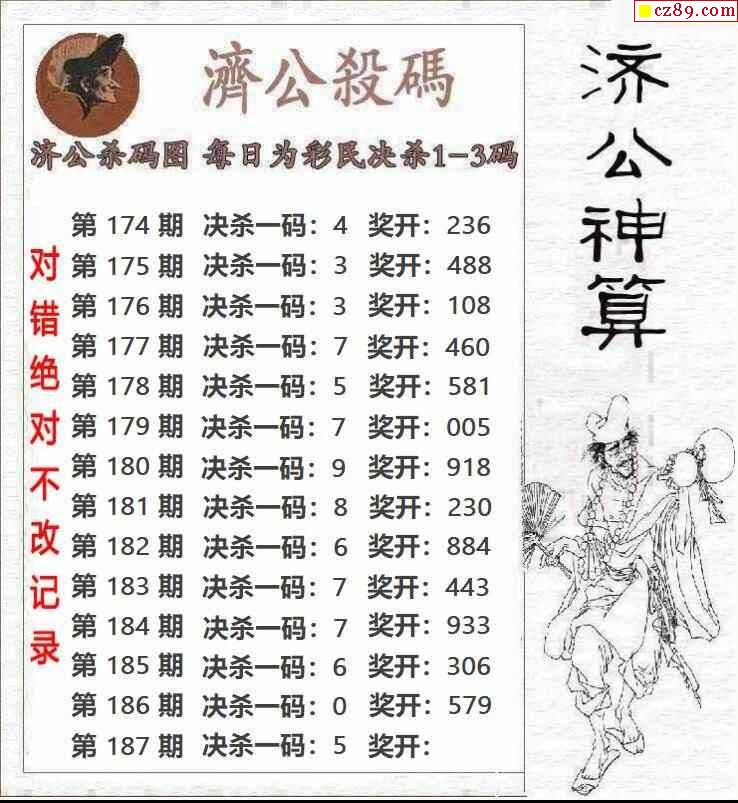 cz89.com
濟公殺碼
济公杀码图 每日为彩民决杀1-3码
第 174 期 决杀一码：4 奖开：236
第 175 期 决杀一码：3 奖开：488
第 176 期 决杀一码：3 奖开：108
第 177 期 决杀一码：7 奖开：460
第 178 期 决杀一码：5 奖开：581
第 179 期 决杀一码：7 奖开：005
第 180 期 决杀一码：9 奖开：918
第 181 期 决杀一码：8 奖开：230
第 182 期 决杀一码：6 奖开：884
第 183 期 决杀一码：7 奖开：443
第 184 期 决杀一码：7 奖开：933
第 185 期 决杀一码：6 奖开：306
第 186 期 决杀一码：0 奖开：579
第 187 期 决杀一码：5 奖开：
对错绝对不改记录
济公神算